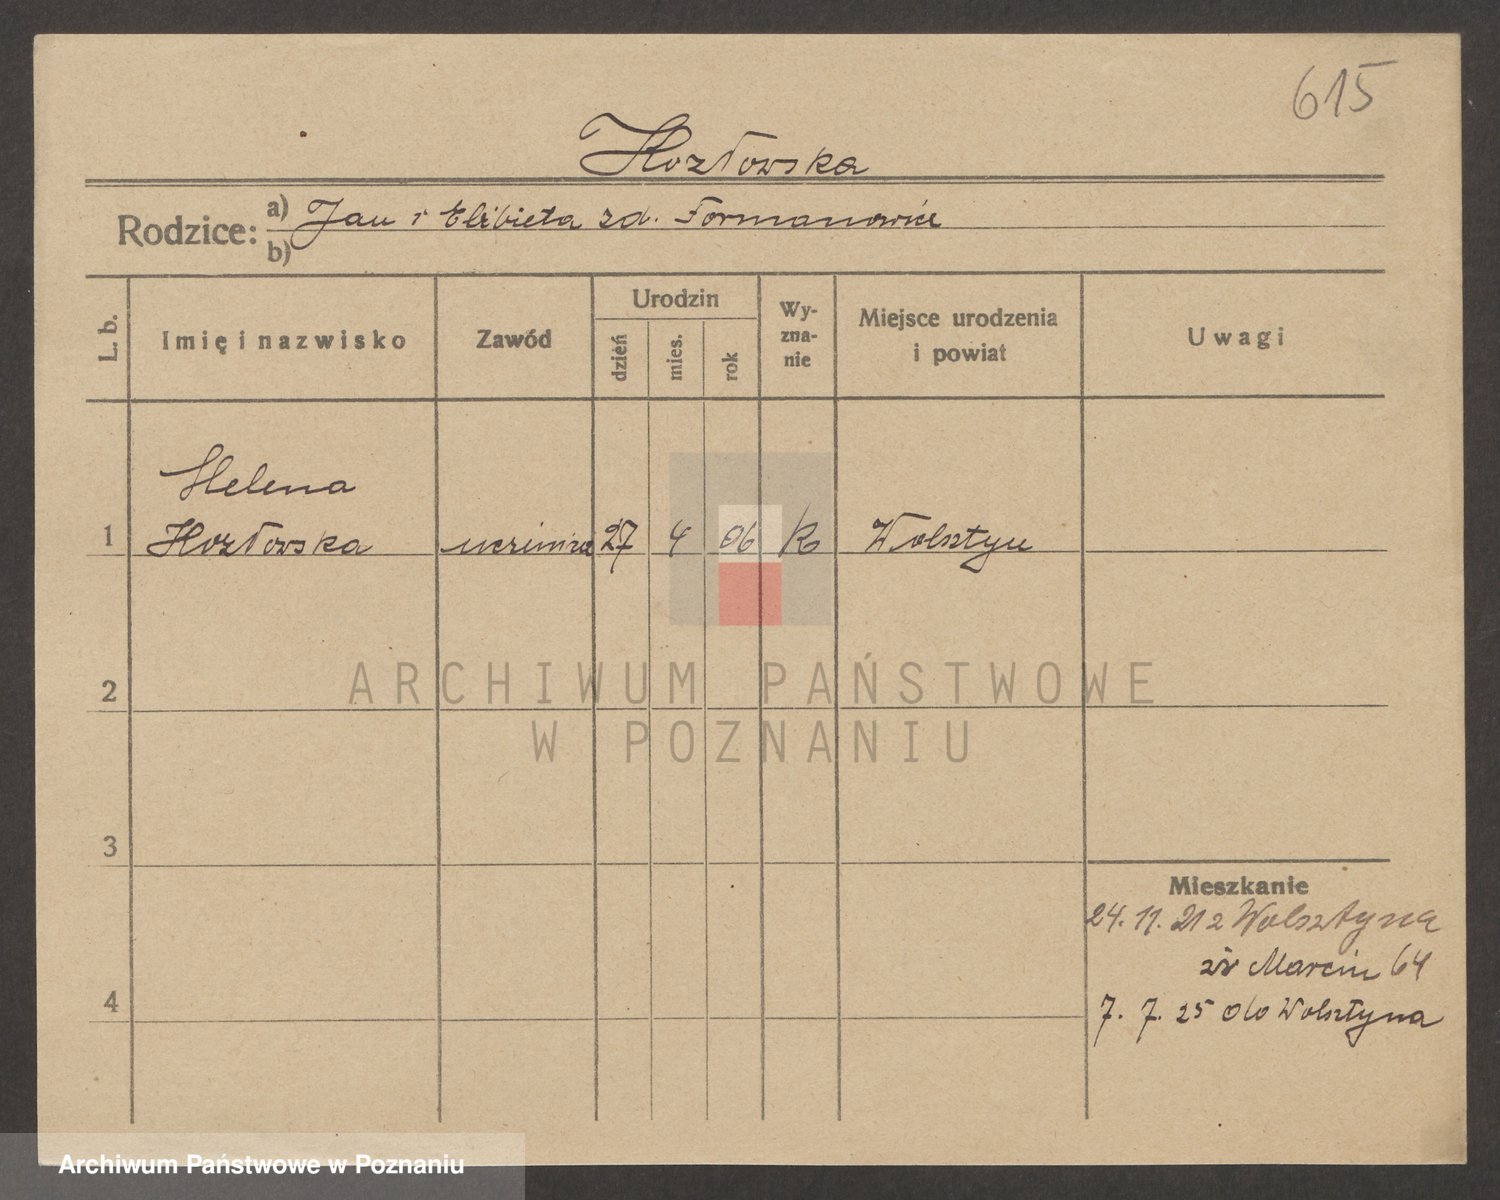 615
Kozłowska
Rodzice: a) Jan i Elżbieta zd. Formanowicz
b)
L. b.
Imię i nazwisko
Zawód
Urodzin
dzień
mies.
rok
Wy-
zna-
nie
Miejsce urodzenia
i powiat
Uwagi
Helena
1 Kozłowska uczennica 27 4 06 k Wolsztyn
2
3
4
Mieszkanie
24. 11. 21 z Wolsztyna
św Marcin 64
7. 7. 25 do Wolsztyna
ARCHIWUM PAŃSTWOWE
W POZNANIU
Archiwum Państwowe w Poznaniu